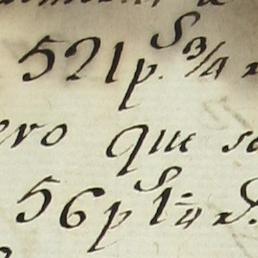 521 pS 3/4 r
ero que se
56 pS 1 1/4 r.